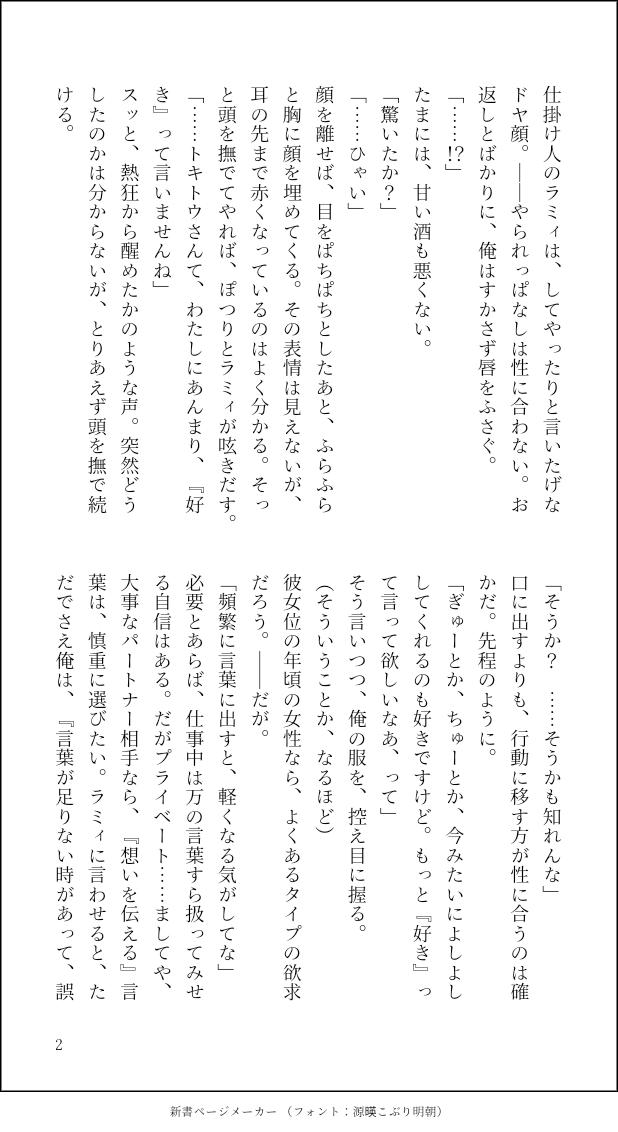 仕掛け人のラミィは、してやったりと言いたげな
ドヤ顔。――やられっぱなしは性に合わない。お
返しとばかりに、俺はすかさず唇をふさぐ。
「……!?」
たまには、甘い酒も悪くない。
「驚いたか？」
「……ひゃい」
顔を離せば、目をぱちぱちとしたあと、ふらふら
と胸に顔を埋めてくる。その表情は見えないが、
耳の先まで赤くなっているのはよく分かる。そっ
と頭を撫でてやれば、ぽつりとラミィが呟きだす。
「……トキトウさんて、わたしにあんまり、『好
き』って言いませんね」
スッと、熱狂から醒めたかのような声。突然どう
したのかは分からないが、とりあえず頭を撫で続
ける。
「そうか？　……そうかも知れんな」
口に出すよりも、行動に移す方が性に合うのは確
かだ。先程のように。
「ぎゅーとか、ちゅーとか、今みたいによしよし
してくれるのも好きですけど。もっと『好き』っ
て言って欲しいなあ、って」
そう言いつつ、俺の服を、控え目に握る。
（そういうことか、なるほど）
彼女位の年頃の女性なら、よくあるタイプの欲求
だろう。――だが。
「頻繁に言葉に出すと、軽くなる気がしてな」
必要とあらば、仕事中は万の言葉すら扱ってみせ
る自信はある。だがプライベート……ましてや、
大事なパートナー相手なら、『想いを伝える』言
葉は、慎重に選びたい。ラミィに言わせると、た
だでさえ俺は、『言葉が足りない時があって、誤
2
新書ページメーカー（フォント：源暎こぶり明朝）